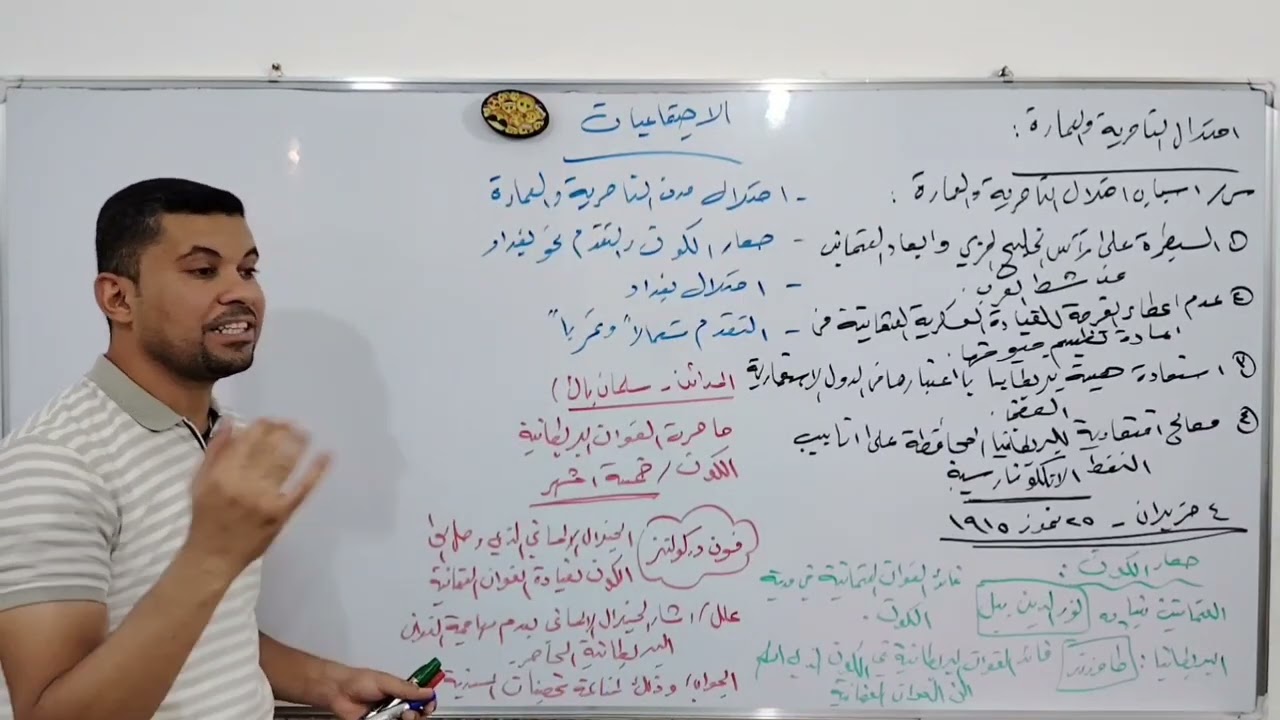 الاجتماعيات
احتلال الناصرية والعمارة :
س/ اسباب احتلال الناصرية والعمارة :
① السيطرة على رأس الخليج العربي وابعاد العثمانين
عن شط العرب .
② عدم اعطاء الفرصة للقيادة العسكرية العثمانية في
اعادة تنظيم جيوشها
③ استعادة هيبة بريطانيا باعتبارها من الدول الاستعمارية
العظمى .
④ مصالح اقتصادية للبريطانيا المحافظة على انابيب
النفط الانكلو فارسية
٤ حزيران - ٢٥ تموز ١٩١٥
حصار الكوت :
العثمانين بقيادة نور الدين بيك
قائد القوات العثمانية في مدينة
الكوت .
البريطانيا : طاوزند قائد القوات البريطانية في الكوت الذي استسلم
الى القوات العثمانية
- احتلال مدن الناصرية والعمارة
- حصار الكوت والتقدم نحو بغداد
- احتلال بغداد
- التقدم شمالاً وغرباً
المدائن - سلمان باك )
حاصرة القوات البريطانية
الكوت / خمسة اشهر
فون در كولتز الجنرال الالماني الذي وصل الى
الكوت لقيادة القوات العثمانية
علل / اشار الجنرال الالماني بعدم مهاجمة القوات
البريطانية المحاصرة
الجواب / وذلك لمناعة تحصينات